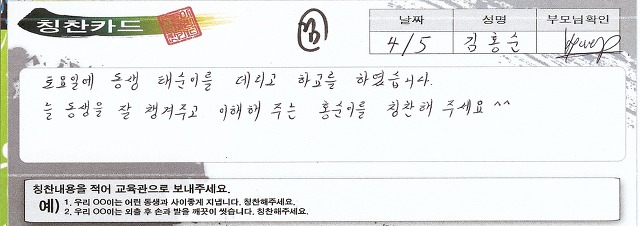 칭찬카드
날짜 성명 부모님확인
4/5 김홍순
토요일에 동생 태순이를 데리고 하교를 하였습니다.
늘 동생을 잘 챙겨주고 이해해 주는 홍순이를 칭찬해 주세요^^
칭찬내용을 적어 교육관으로 보내주세요.
예) 1. 우리 OO이는 어린 동생과 사이좋게 지냅니다. 칭찬해주세요.
2. 우리 OO이는 외출 후 손과 발을 깨끗이 씻습니다. 칭찬해주세요.